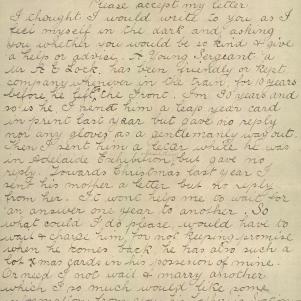 Please accept my letter.
I thought I would write to you as I
feel myself in the dark and asking
you whether you would be so kind & give
a help or advice. A Young Sergeant "a
Mr A E Lock, has been friendly or kept
company whenever in the train 4 years
before he left the Front. Im 30 years and
so is he, I sent him a leap year card
in print last year but gave no reply
nor any gloves as a gentlemanly way out.
Then I sent him a letter while he was
in Adelaide Exhibition but gave no
reply. Towards Christmas last year I
sent his mother a letter but no reply
from her. It wont help me to wait for
an answer one year to another. So
what could I do please, would have to
wait & charge him for not keeping promise
when he comes back, he has also such a
lot Xmas cards in his possesion of mine.
Or need I not wait & marry another
which I so much would like some